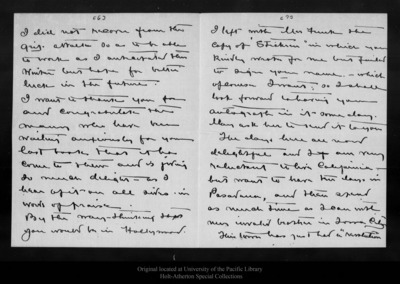 I did not recover from this
Grip attack so as to be able
to work as I anticipated this
Winter but hope for better
luck in the future.
I want to thank you for
and congratulate the
many who have been
waiting anxiously for your
last book that it has
come to them and is giving
so much delight - as I
hear of it on all sides in
words of praise.
By the way - thinking
you would be in Hollywood
I left with Mrs Funk the
copy of "Stickeen" in which you
kindly wrote for me but failed
to sign your name - which
of course I want; so I shall
look forward to having your
autograph in it some day.
The days here are most
delightful and I am very
reluctant to leave California
but want to have few days in
Pasadena, and then spend
as much time as I can with
my invalid brother in Iowa
This town has just had a
Original located at University of the Pacific Library
Holt-Atherton Special Collections